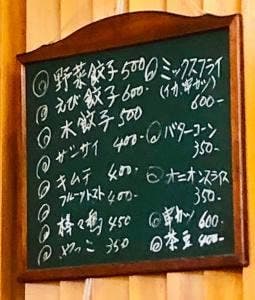 野菜餃子 500
えび餃子 600-
水餃子 500
サンサイ 400-
キムチ 400-
フルーツトマト 400-
棒々鶏 450
やっこ 350
ミックスフライ
(イカ、串カツ)
600-
バターコーン
350-
オニオンスライス
350-
串カツ 600-
茶豆 400-